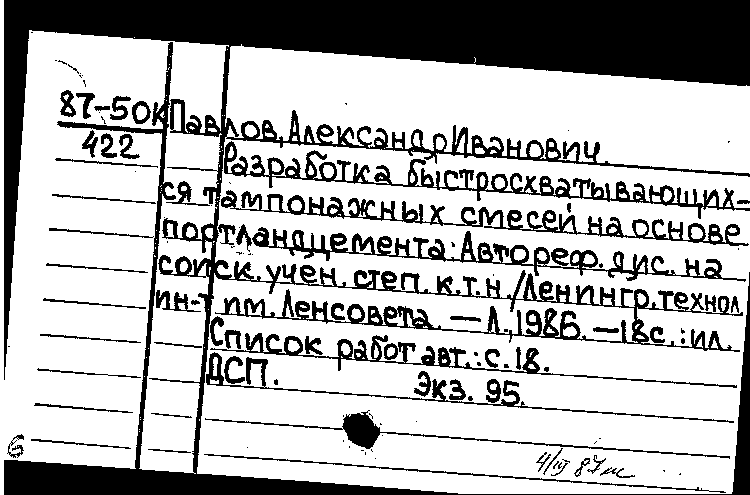 87-50К
422
Павлов, Александр Иванович.
Разработка быстросхватывающих-
ся тампонажных смесей на основе
портландцемента: Автореф. дис. на
соиск. учен. степ. к.т.н./Ленингр. технол.
ин-т им. Ленсовета. — Л., 1986. — 18с.: ил.
Список работ авт.: с. 18.
ДСП. Экз. 95.
6
4/IV 87